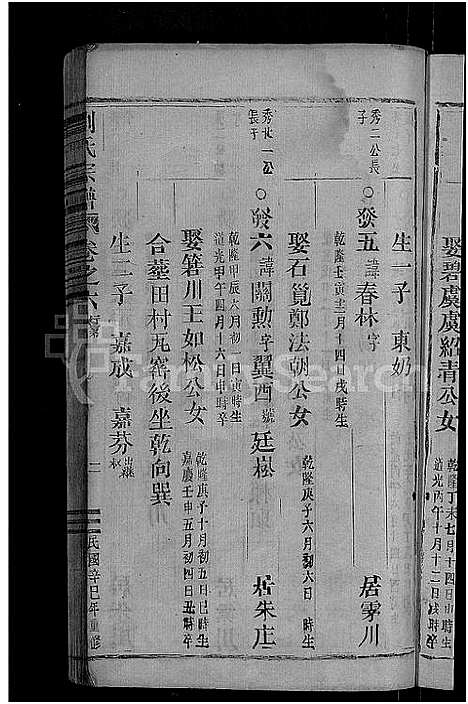 娶碧虞虞紹青公女
乾隆丁未七月十四日戌時生
道光丙午十月十二日戌時卒
生一子 東奶
秀二公長子
○發五諱春林字 居雩川
乾隆壬寅十二月十四日戌時生
娶石𥕢鄭法朝公女
乾隆庚子六月初六日 時生
秀廿一公長子
○發六諱關勲字翼西號廷崧 居朱庄
乾隆甲辰六月初一日寅時生
道光甲午四月十六日申時卒
娶箬川王如松公女
乾隆庚子十月初五日巳時生
嘉慶壬申五月初四日丑時卒
合葬田村瓦窰後坐乾向巽
生二子 嘉成 嘉芬出繼
劉氏宗譜 卷之六 行第 一 民國辛巳年重修
TanySearch